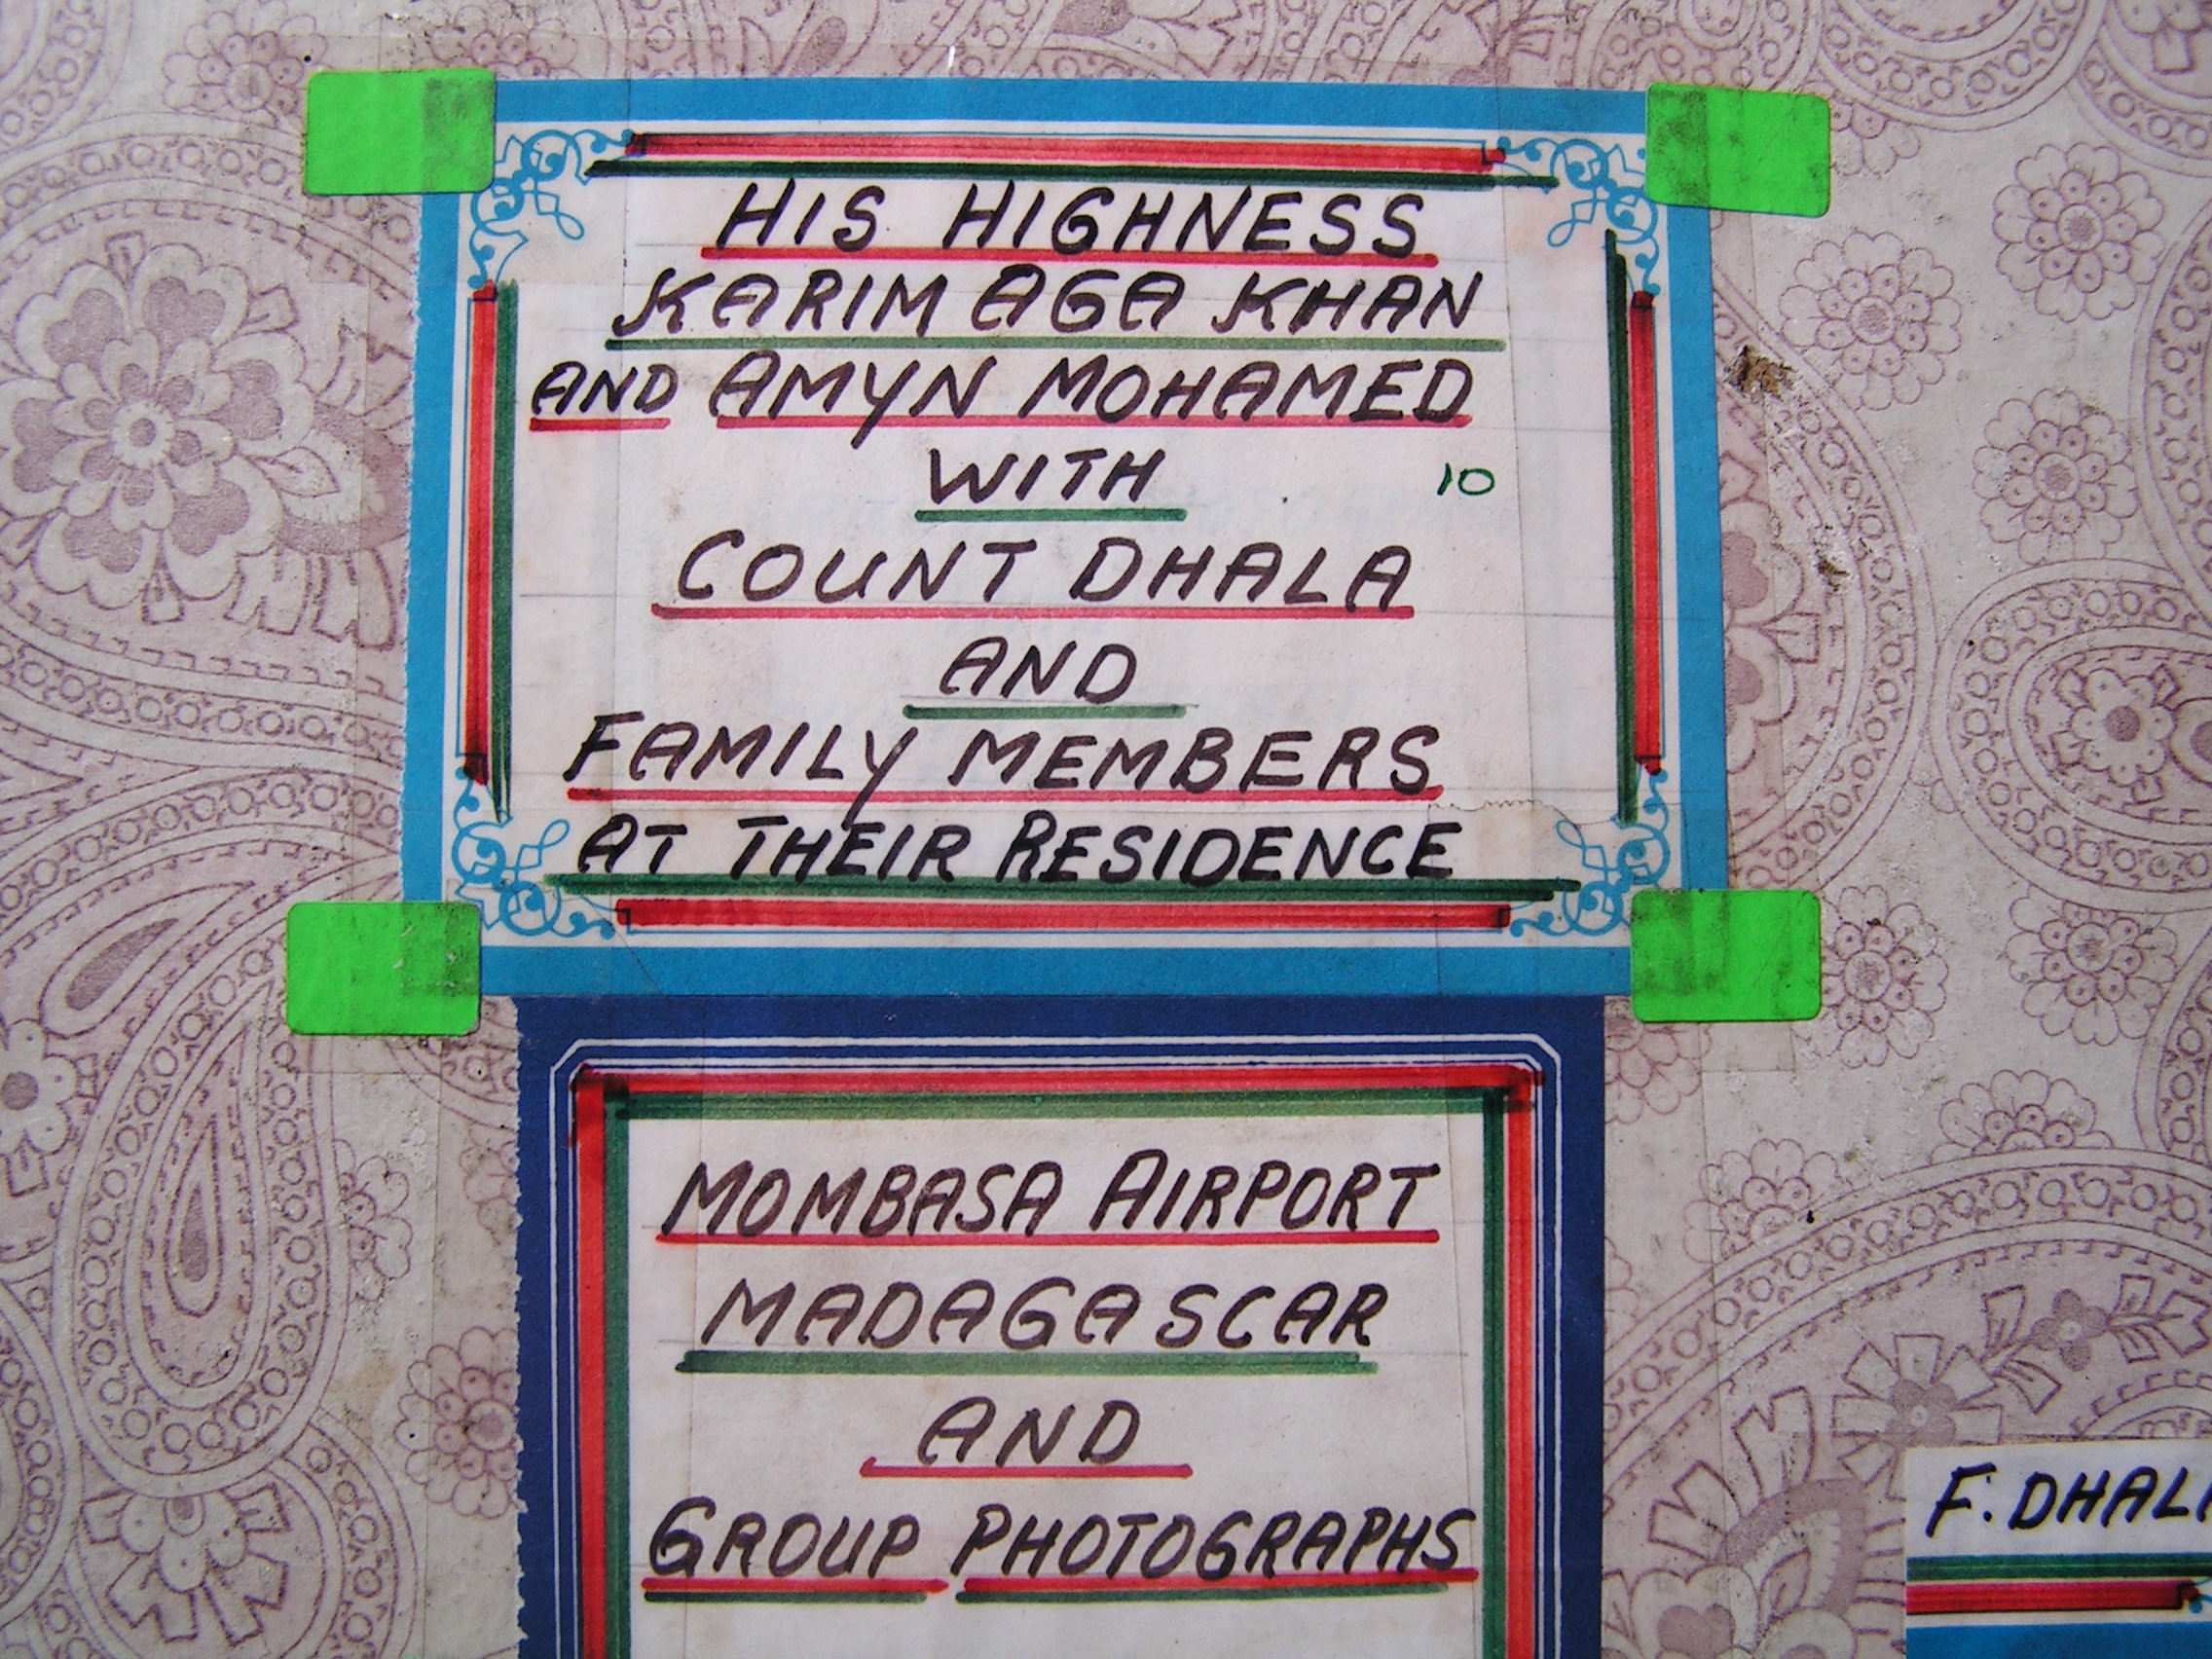 HIS HIGHNESS
KARIM AGA KHAN
AND AMYN MOHAMED
WITH 10
COUNT DHALA
AND
FAMILY MEMBERS
AT THEIR RESIDENCE
MOMBASA AIRPORT
MADAGASCAR
AND
GROUP PHOTOGRAPHS
F. DHALA